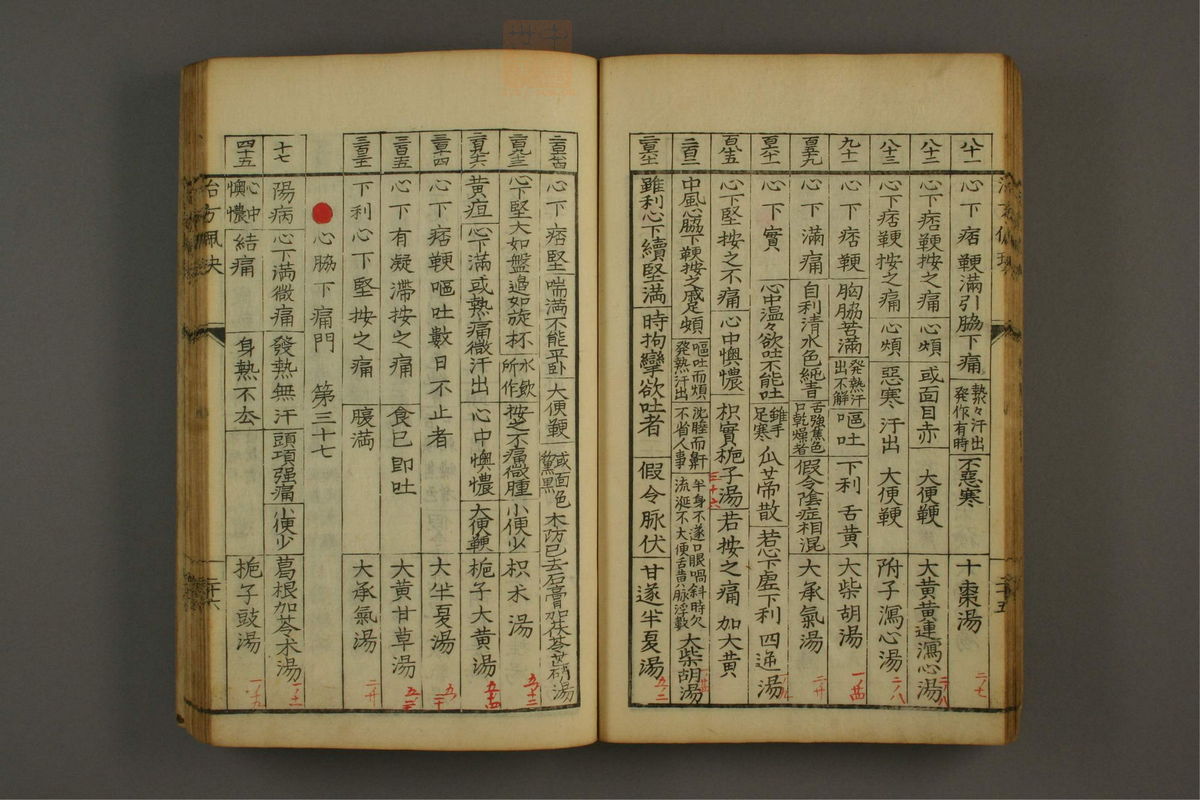 八十一 心下痞鞕滿引脇下痛 熱々汗出發作有時 不惡寒 十棗湯
八十二 心下痞鞕按之痛 心煩 或面目赤 大便鞕 大黃黃連瀉心湯
八十三 心下痞鞕按之痛 心煩 惡寒汗出 大便鞕 附子瀉心湯
九十一 心下痞鞕 胸脇苦滿 發熱汗出不解 嘔吐 下利舌黃 大柴胡湯
心下滿痛 自利清水色純青 舌強焦色口乾燥者 假令陰症相混 大承氣湯
心下實 心中溫々欲吐不能吐 雖手足寒 瓜蒂散 若心下虛下利 四逆湯
心下堅按之不痛 心中懊憹 枳實梔子湯 若按之痛 加大黃
中風心脇下鞕按之處足煩 嘔吐而煩發熱汗出 沈睡而鼾不省人事 半身不遂口眼喎斜時欠流涎不大便舌黃脉浮數 大柴胡湯
雖利心下續堅滿 時拘攣欲吐者 假令脉伏 甘遂半夏湯
心下痞堅 喘滿不能平臥 大便鞕 或面色黧黑 木防已去石膏加茯苓芒硝湯
心下堅大如盤邉如旋杯 水飲所作 按之不痛微腫 小便少 枳朮湯
黃疸 心下滿或熱痛微汗出 心中懊憹 大便鞕 梔子大黃湯
心下痞鞕嘔吐數日不止者 大半夏湯
心下有凝滯按之痛 食已即吐 大黃甘草湯
下利心下堅按之痛 腹滿 大承氣湯
心脇下痛門 第三十七
十七 陽病 心下滿微痛 發熱無汗 頭項强痛 小便少 葛根加苓朮湯
四十五 心中懊憹 結痛 身熱不去 梔子豉湯